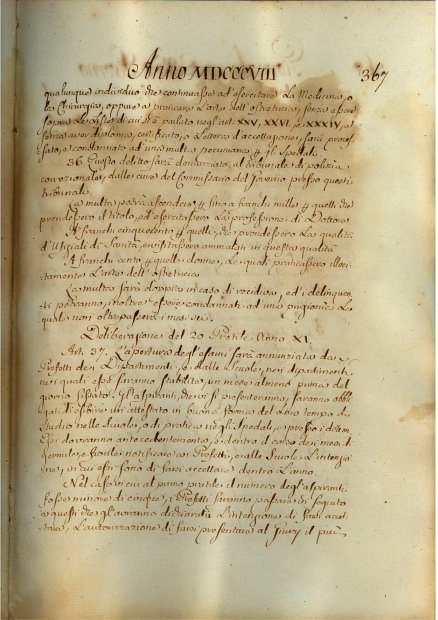 Anno MDCCCVIII 367
qualunque individuo che continuasse ad esercitare La Medicina, o
la Chirurgia, oppure a praticare L'arte dell'ostetricia, senza essere
sopra Le Liste di cui s'è parlato negl'art. XXV, XXVI, e XXXIV, e
senza aver diploma, certificato, o Lettera d'accettazione, sarà proces
sato, e condannato ad una multa pecuniaria p gli Spedali.
36. Questo delitto sarà denunziato al tribunale di polizia
correzionale, dalle cure del Commissario del Governo presso questi
tribunale.
La multa potrà ascendere p fino a franchi mille p quelli che
prendessero il titolo, ed esercitassero La professione di Dottore
A franchi cinquecento p quelli, che prendessero La qualità
d'Uffiziali di Sanità, e visitassero ammalati in questa qualità
A franchi cento p quelle donne, Le quali praticassero illeci
tamente L'arte dell'Ostetricia.
La multa sarà doppia in caso di recidiva, ed i delinquen
ti potranno, inoltre essere condannati ad una prigionia La
quale non oltrepasserà i mesi sei.
Deliberazione del 20 Pratile Anno XI.
Art. 37. L'apertura degl'esami sarà annunziata da
Prefetti dei Dipartimenti, e dalle Scuole, nei dipartimenti,
nei quali esse saranno stabilite, un mese almeno prima del
giorno fissato. Gl'aspiranti, che vi si presenteranno, saranno obbli
gati esibire un attestato in buona forma del Loro tempo di
Studio nelle Scuole, o di pratica negli Spedali, o presso i dottori
Essi dovranno antecedentemente, e dentro il corso dei mesi di
germile, e fiorile notificare ai Prefetti, o alle Scuole L'intenzio
ne, in cui essi sono di farsi accettare dentro L'anno.
Nel caso in cui al primo pratile il numero degl'aspiranti
fosse minore di cinque, i Prefetti faranno passare in seguito
a questi che gl'avranno dichiarata L'intenzione di farsi accet
tare, L'autorizzazione di farsi presentare al Jury il più